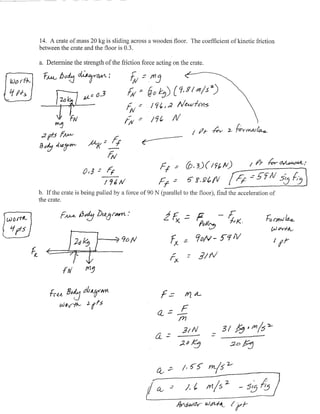 14. A crate of mass 20 kg is sliding across a wooden floor. The coefficient of kinetic friction
between the crate and the floor is 0.3.
a. Determine the strength of the friction force acting on the crate.
Worth
4 pts
Free Body diagram:
20kg
μ = 0.3
FN
mg
2 pts Free
Body diagram
FN = mg
FN = (20 kg)(9.81 m/s²)
FN = 196.2 Newtons
FN = 196 N
1 pt for 2 formulas
μK = Ff / FN
0.3 = Ff / 196N
Ff = (0.3)(196N)
Ff = 58.86N
1 pt for answer:
Ff = 59N sig fig
b. If the crate is being pulled by a force of 90 N (parallel to the floor), find the acceleration of
the crate.
Worth
4 pts
Free Body Diagram:
20kg
90N
FK
FN
mg
Free Body diagram
worth 2 pts
ΣFx = Fpulling - Ff.K.
Fx = 90N - 59N
Fx = 31N
Formulas
worth
1 pt
F = ma
a = F / m
a = 31N / 20kg = 31 kg·m/s² / 20kg
a = 1.55 m/s²
a = 1.6 m/s² - sig fig
Answer worth 1 pt